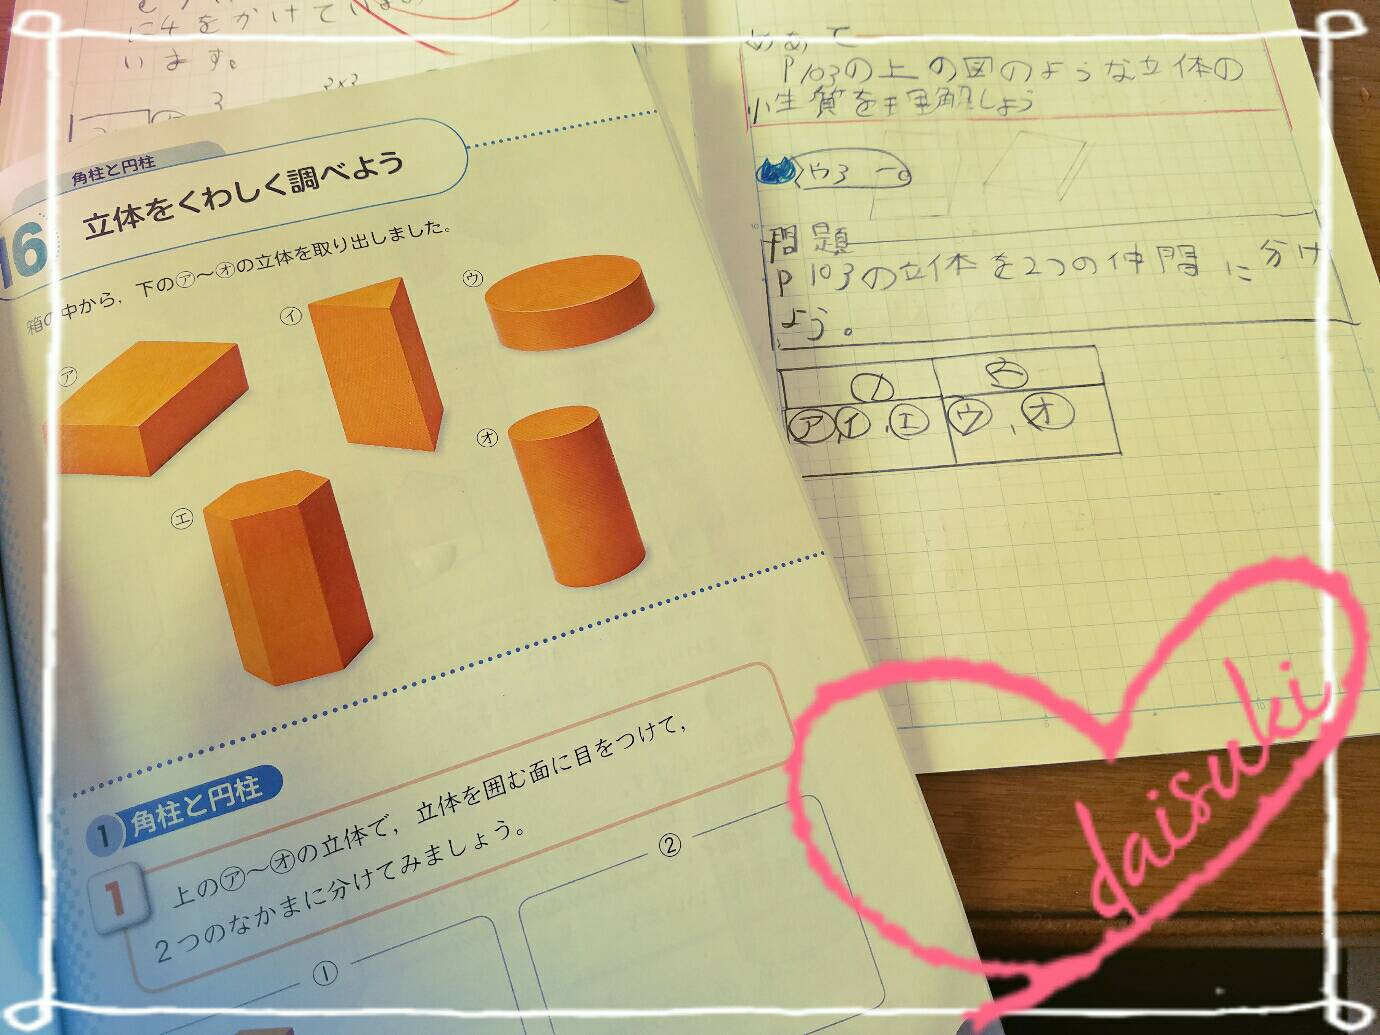 に4をかけていま
います。
角柱と円柱
16 立体をくわしく調べよう
箱の中から，下の㋐〜㋔の立体を取り出しました。
㋐
㋑
㋒
㋓
㋔
1 角柱と円柱
1 上の㋐〜㋔の立体で，立体を囲む面に目をつけて，
2つのなかまに分けてみましょう。
①
②
めあて
P103の上の図のような立体の
性質を理解しよう
問題
P103の立体を2つの仲間に分け
よう。
㋐㋑、㋓
㋒、㋔
daisuki